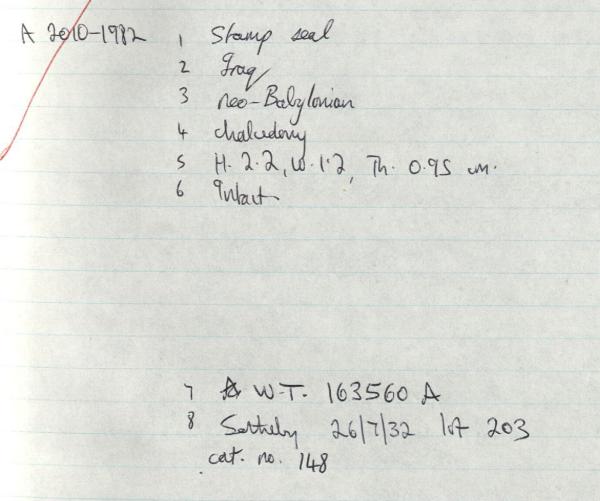 A 2010-1982 1 Stamp seal
2 Iraq
3 neo-Babylonian
4 chalcedony
5 H. 2.2, W. 1.2, Th. 0.95 cm.
6 Intact
7 A W.T. 163560 A
8 Sotheby 26/7/32 lot 203
cat. no. 148